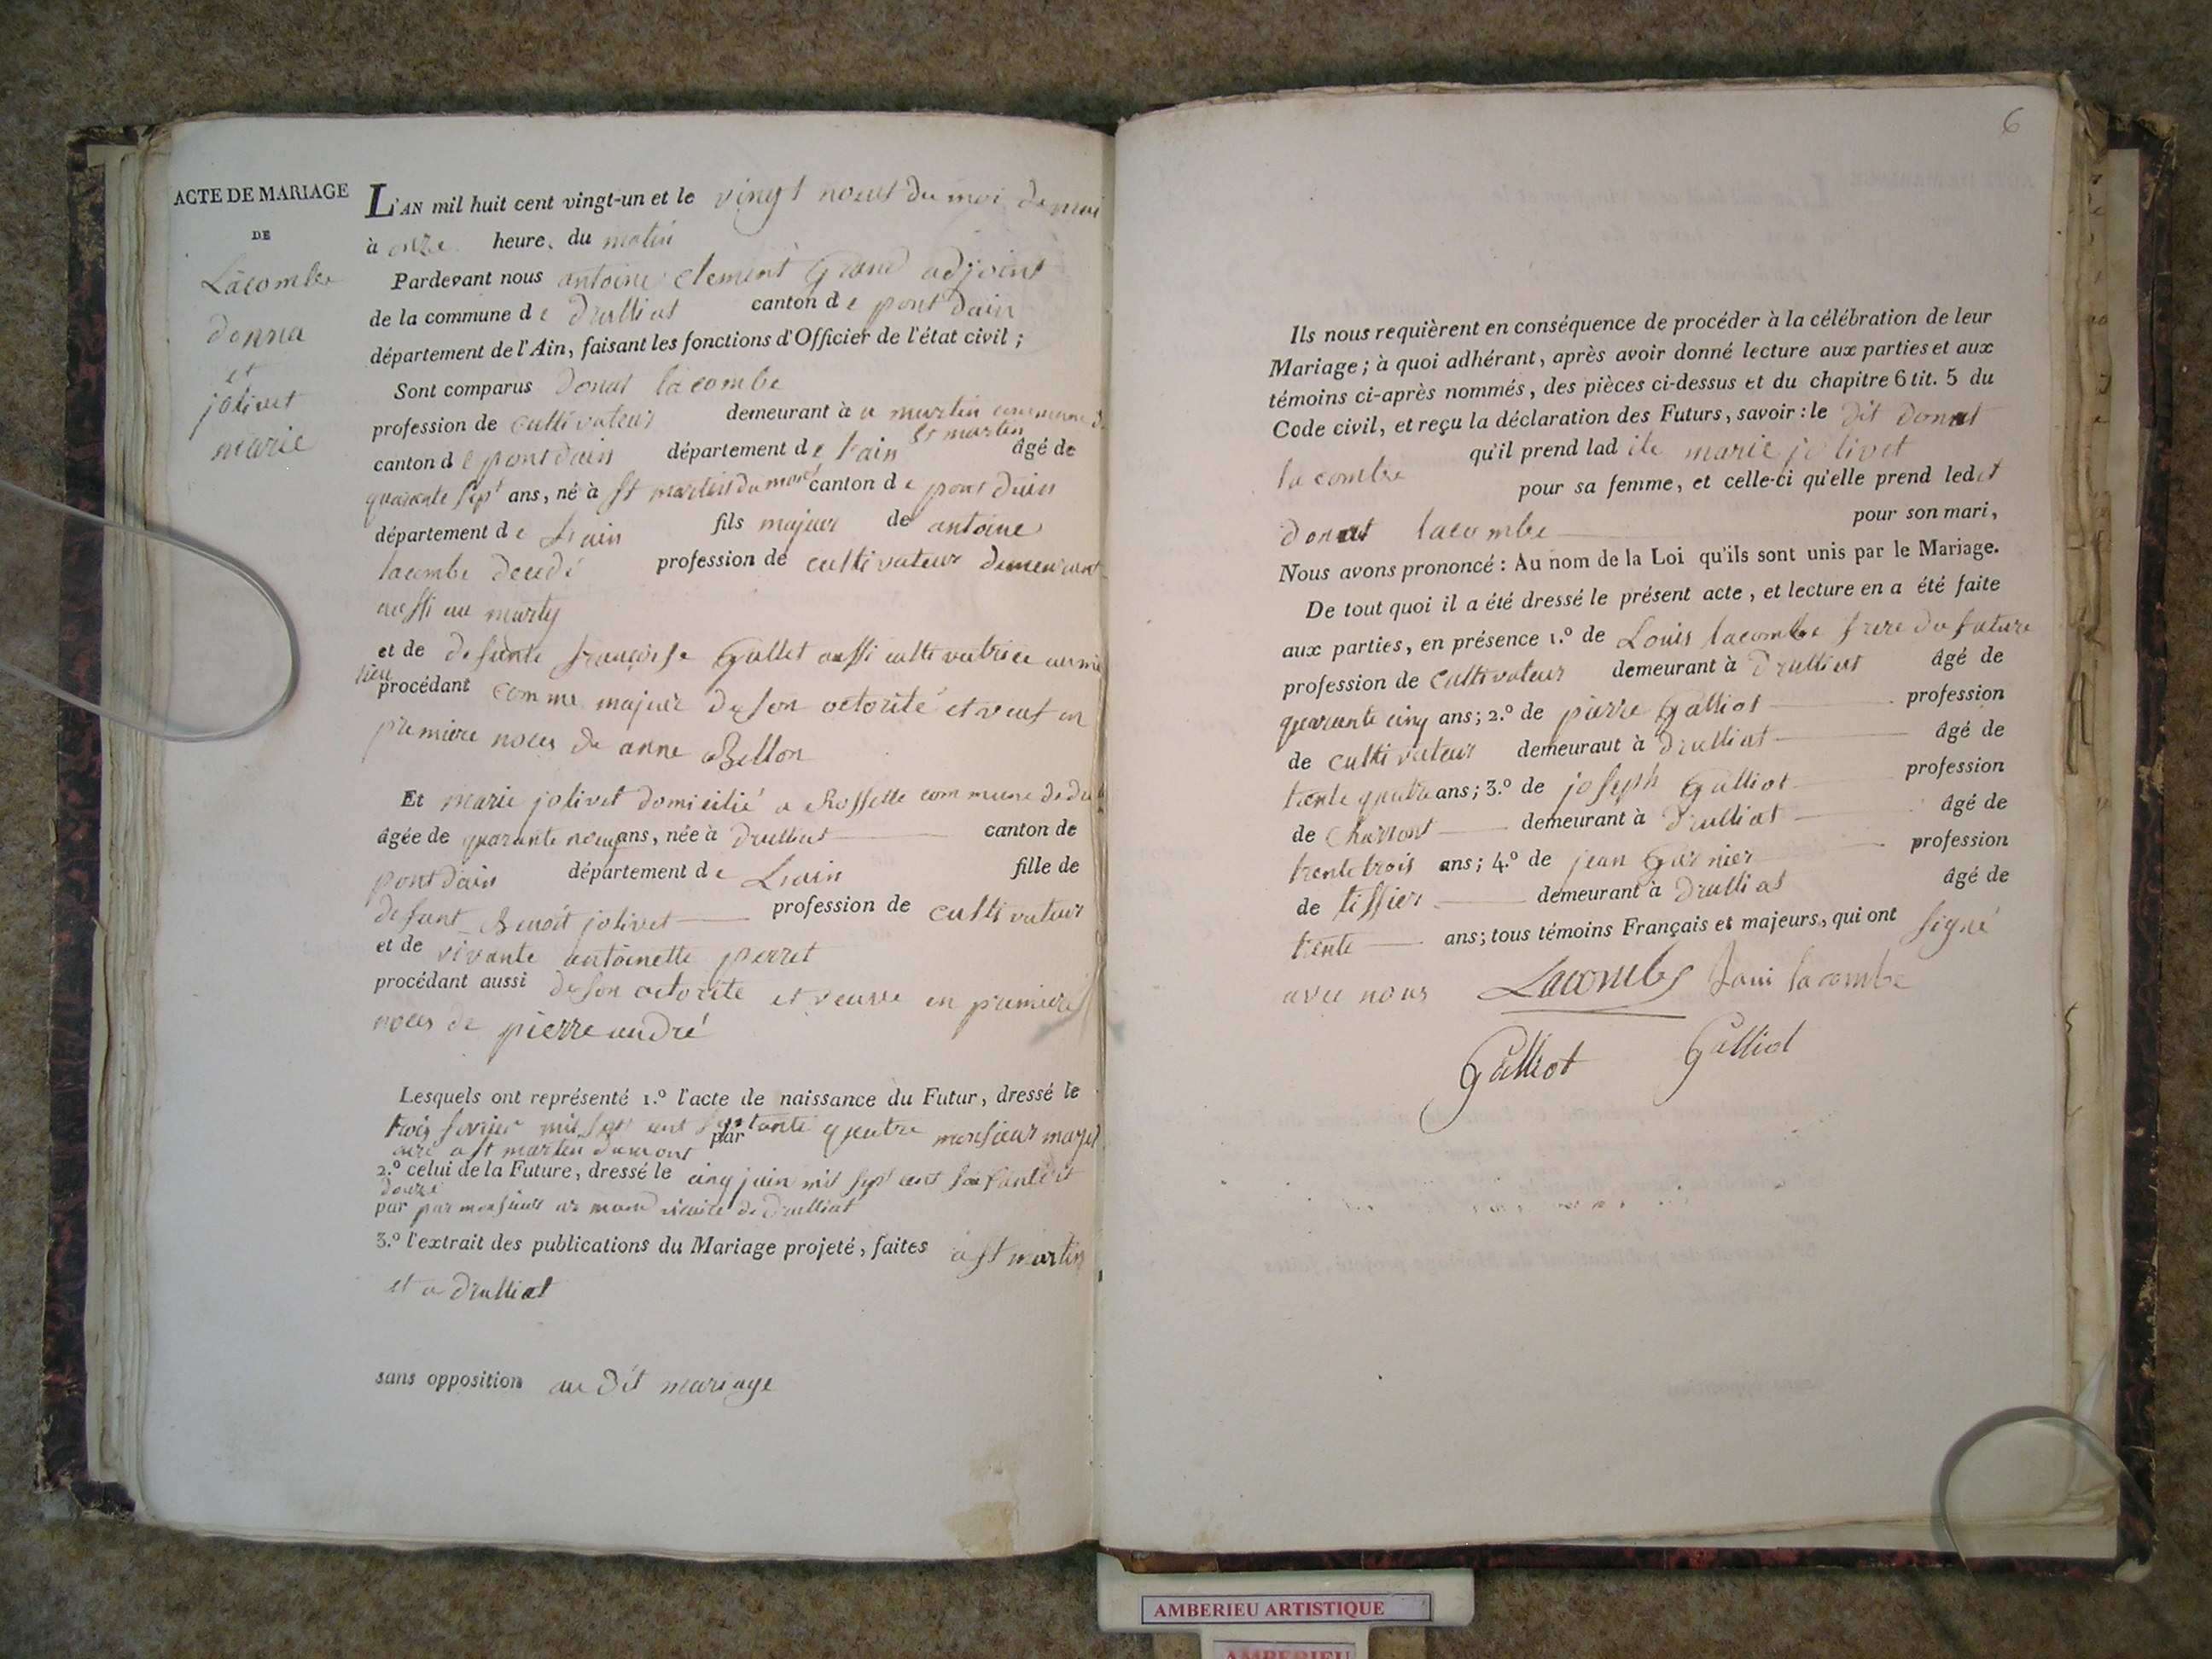 ACTE DE MARIAGE
DE
Lacombe
donna
et
jolivet
marie
L'AN mil huit cent vingt-un et le vingt neuf du moi de mai
à onze heure, du matin
Pardevant nous antoine clement Grand adjoint
de la commune de Drulliat canton de pont dain
département de l'Ain, faisant les fonctions d'Officier de l'état civil ;
Sont comparus donat lacombe
profession de cultivateur demeurant à a martin commune de
St martin
canton de pont dain département de l'ain âgé de
quarante sept ans, né à St martin du mont canton de pont dain
département de Lain fils majeur de antoine
lacombe décédé profession de cultivateur demeurant
aussi au marty
et de defunte françoise Gullet aussi cultivatrice au mi
lieu
procédant comme majeur de son octorité et veuf en
premiere noces de anne Bellon
Et marie jolivet domicilié a Rossette commune de dru
âgée de quarante neuf ans, née à Drulliat canton de
pont dain département de Lain fille de
defunt Benoît jolivet profession de cultivateur
et de vivante antoinette perret
procédant aussi de son octorité et veuve en premiere
noces de pierre andré
Lesquels ont représenté 1.º l'acte de naissance du Futur, dressé le
trois fevrier mil sept cent septante quatre par monsieur
a St martin dumont
2.º celui de la Future, dressé le cinq juin mil sept cent soixante et
douze
par par monsieur vicaire de drulliat
3.º l'extrait des publications du Mariage projeté, faites a St martin
et a drulliat
sans opposition au dit mariage
6
Ils nous requièrent en conséquence de procéder à la célébration de leur
Mariage ; à quoi adhérant, après avoir donné lecture aux parties et aux
témoins ci-après nommés, des pièces ci-dessus et du chapitre 6 tit. 5 du
Code civil, et reçu la déclaration des Futurs, savoir : le dit donat
lacombe qu'il prend lad ite marie jolivet
pour sa femme, et celle-ci qu'elle prend ledit
donat lacombe pour son mari,
Nous avons prononcé : Au nom de la Loi qu'ils sont unis par le Mariage.
De tout quoi il a été dressé le présent acte, et lecture en a été faite
aux parties, en présence 1.º de Louis lacombe frere du future
profession de cultivateur demeurant à Drulliat âgé de
quarante cinq ans ; 2.º de pierre Galliot profession
de cultivateur demeuraut à Drulliat âgé de
trente quatre ans ; 3.º de joseph Galliot profession
de charront demeurant à Drulliat âgé de
trente trois ans ; 4.º de jean Garnier profession
de tissier demeurant à Drulliat âgé de
trente ans ; tous témoins Français et majeurs, qui ont signé
avec nous Lacombe Loui lacombe
Galliot Galliot
AMBERIEU ARTISTIQUE
AMBERIEU